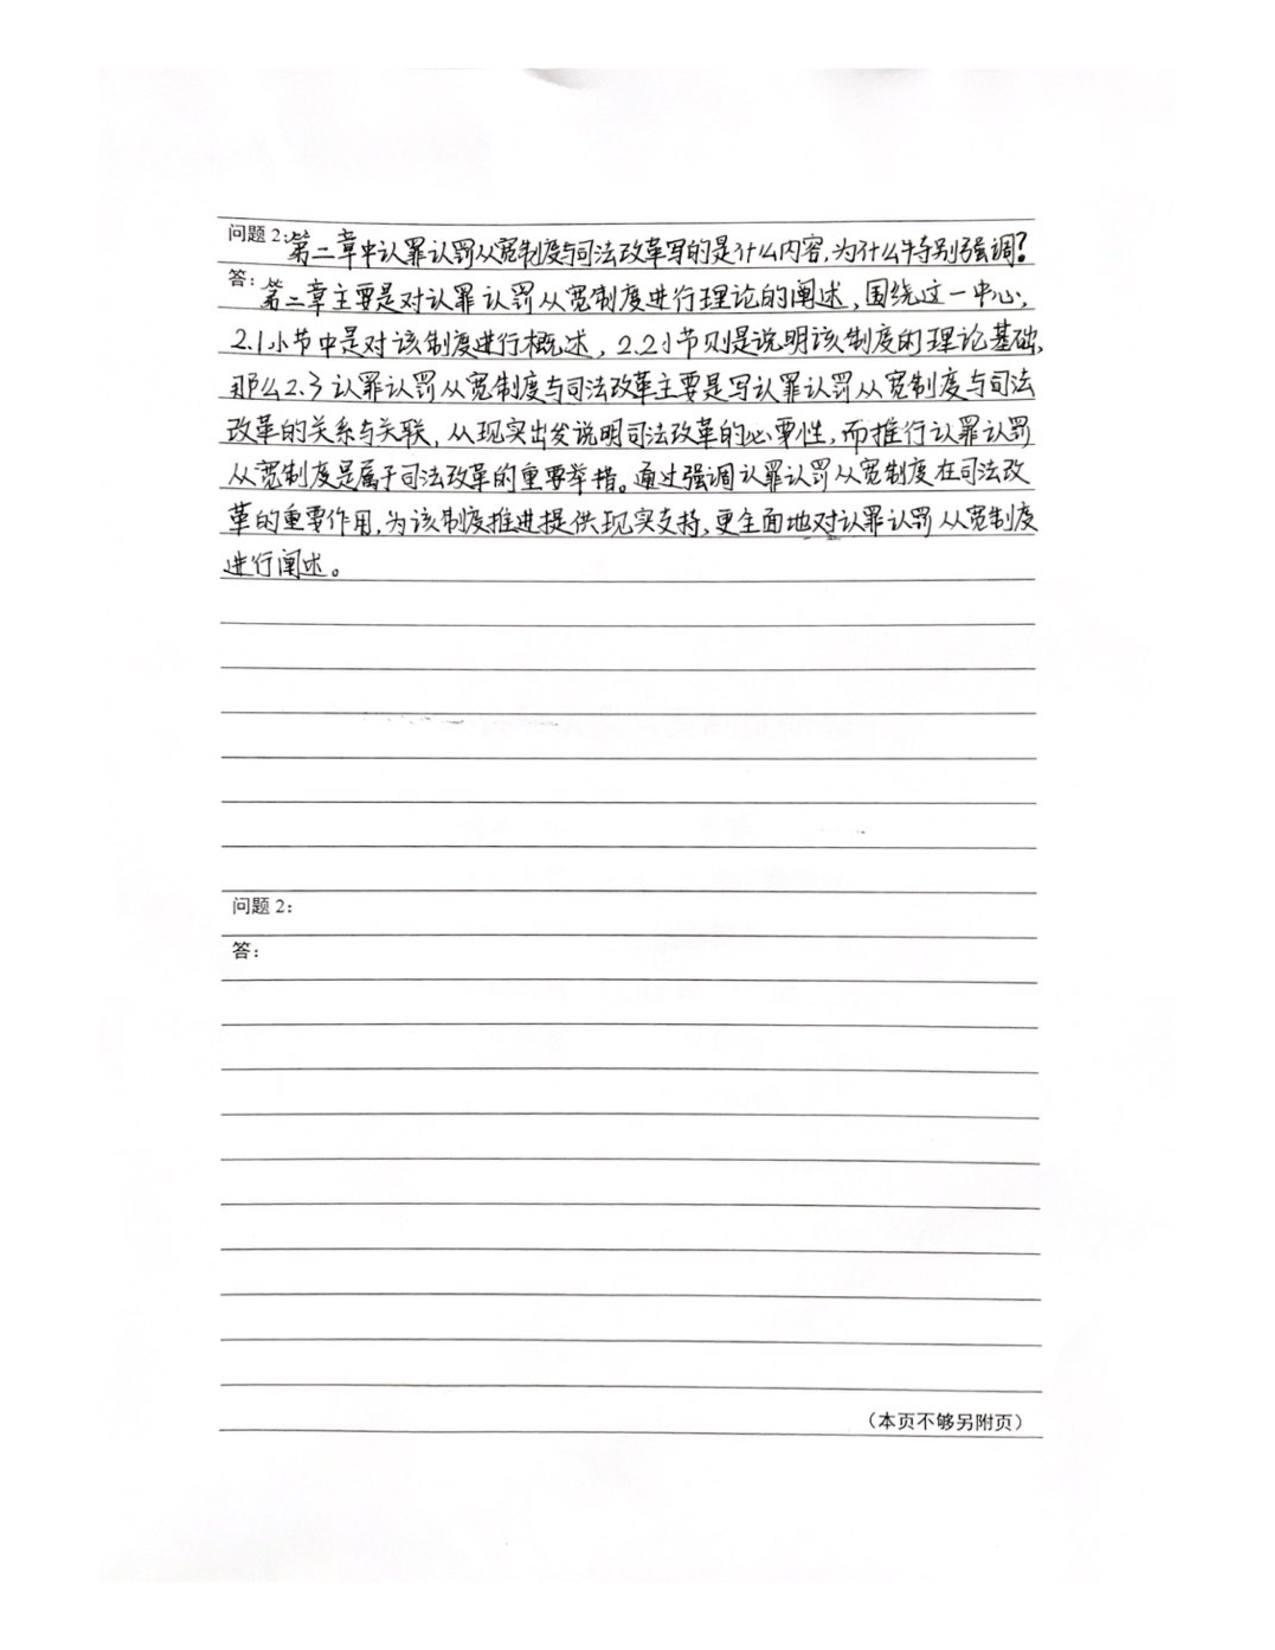 问题2:第二章中认罪认罚从宽制度与司法改革写的是什么内容,为什么特别强调?
答:第二章主要是对认罪认罚从宽制度进行理论的阐述,围绕这一中心,
2.1小节中是对该制度进行概述,2.2小节则是说明该制度的理论基础,
那么2.3认罪认罚从宽制度与司法改革主要是写认罪认罚从宽制度与司法
改革的关系与关联,从现实出发说明司法改革的必要性,而推行认罪认罚
从宽制度是属于司法改革的重要举措。通过强调认罪认罚从宽制度在司法改
革的重要作用,为该制度推进提供现实支持,更全面地对认罪认罚从宽制度
进行阐述。
问题2:
答:
(本页不够另附页)